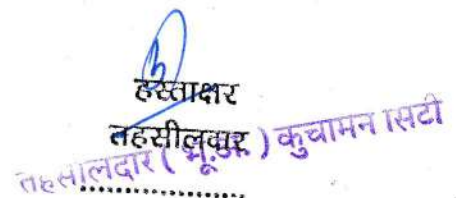 हस्ताक्षर
तहसीलदार
तहसीलदार ( भू.अ. ) कुचामन सिटी
....................